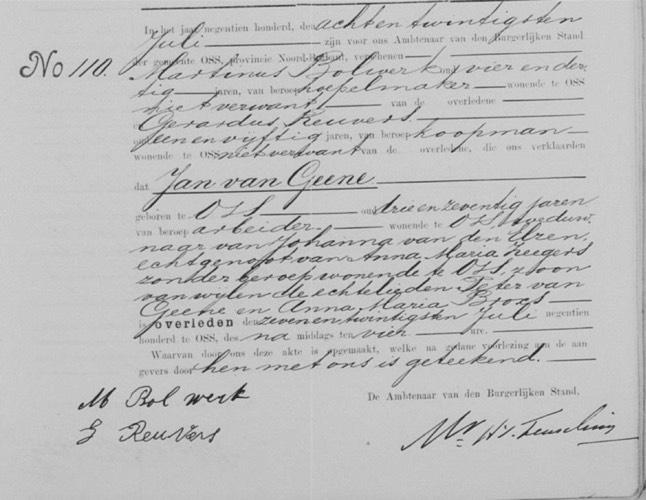 In het jaar negentien honderd, den achtentwintigsten
Juli zijn voor ons Ambtenaar van den Burgerlijken Stand
No 110. der gemeente OSS, provincie Noord-Brabant, verschenen
Martinus Bolwerk oud vier en der-
tig jaren, van beroep kepelmaker wonende te OSS
niet verwant van de overledene
Gerardus Reuvers
een en vijftig jaren, van beroep koopman
wonende te OSS niet verwant van de overledene, die ons verklaarden
dat Jan van Geene
geboren te Oss oud drie en zeventig jaren
van beroep arbeider wonende te Oss, weduw-
naar van Johanna van den Elzen,
echtgenoot van Anna Maria Zeegers
zonder beroep wonende te Oss, zoon
van wijlen de echtelieden Peter van
Geene en Anna Maria Broxs
is overleden den zeven en twintigsten Juli negentien
honderd te OSS, des na middags ten vier ure.
Waarvan door ons deze akte is opgemaakt, welke na gedane voorlezing aan de aan
gevers door hen met ons is geteekend.
De Ambtenaar van den Burgerlijken Stand,
M Bolwerk
G Reuvers
Mr.